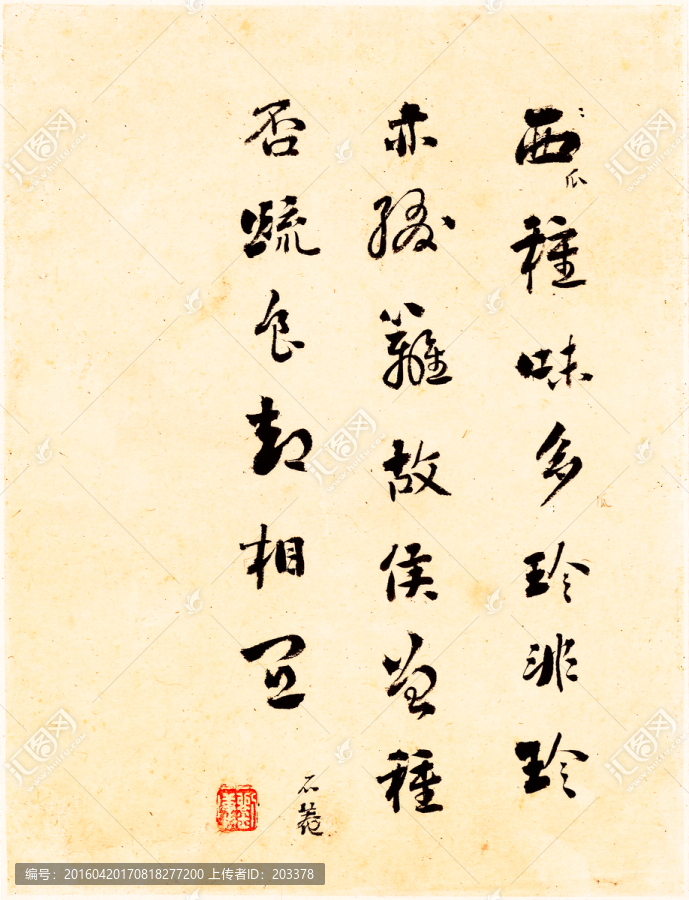 西瓜種味多珍非珍
亦綴籬故侯曾種
否疏食却相宜
石菴
汇图网
编号：20160420170818277200 上传者ID：203378